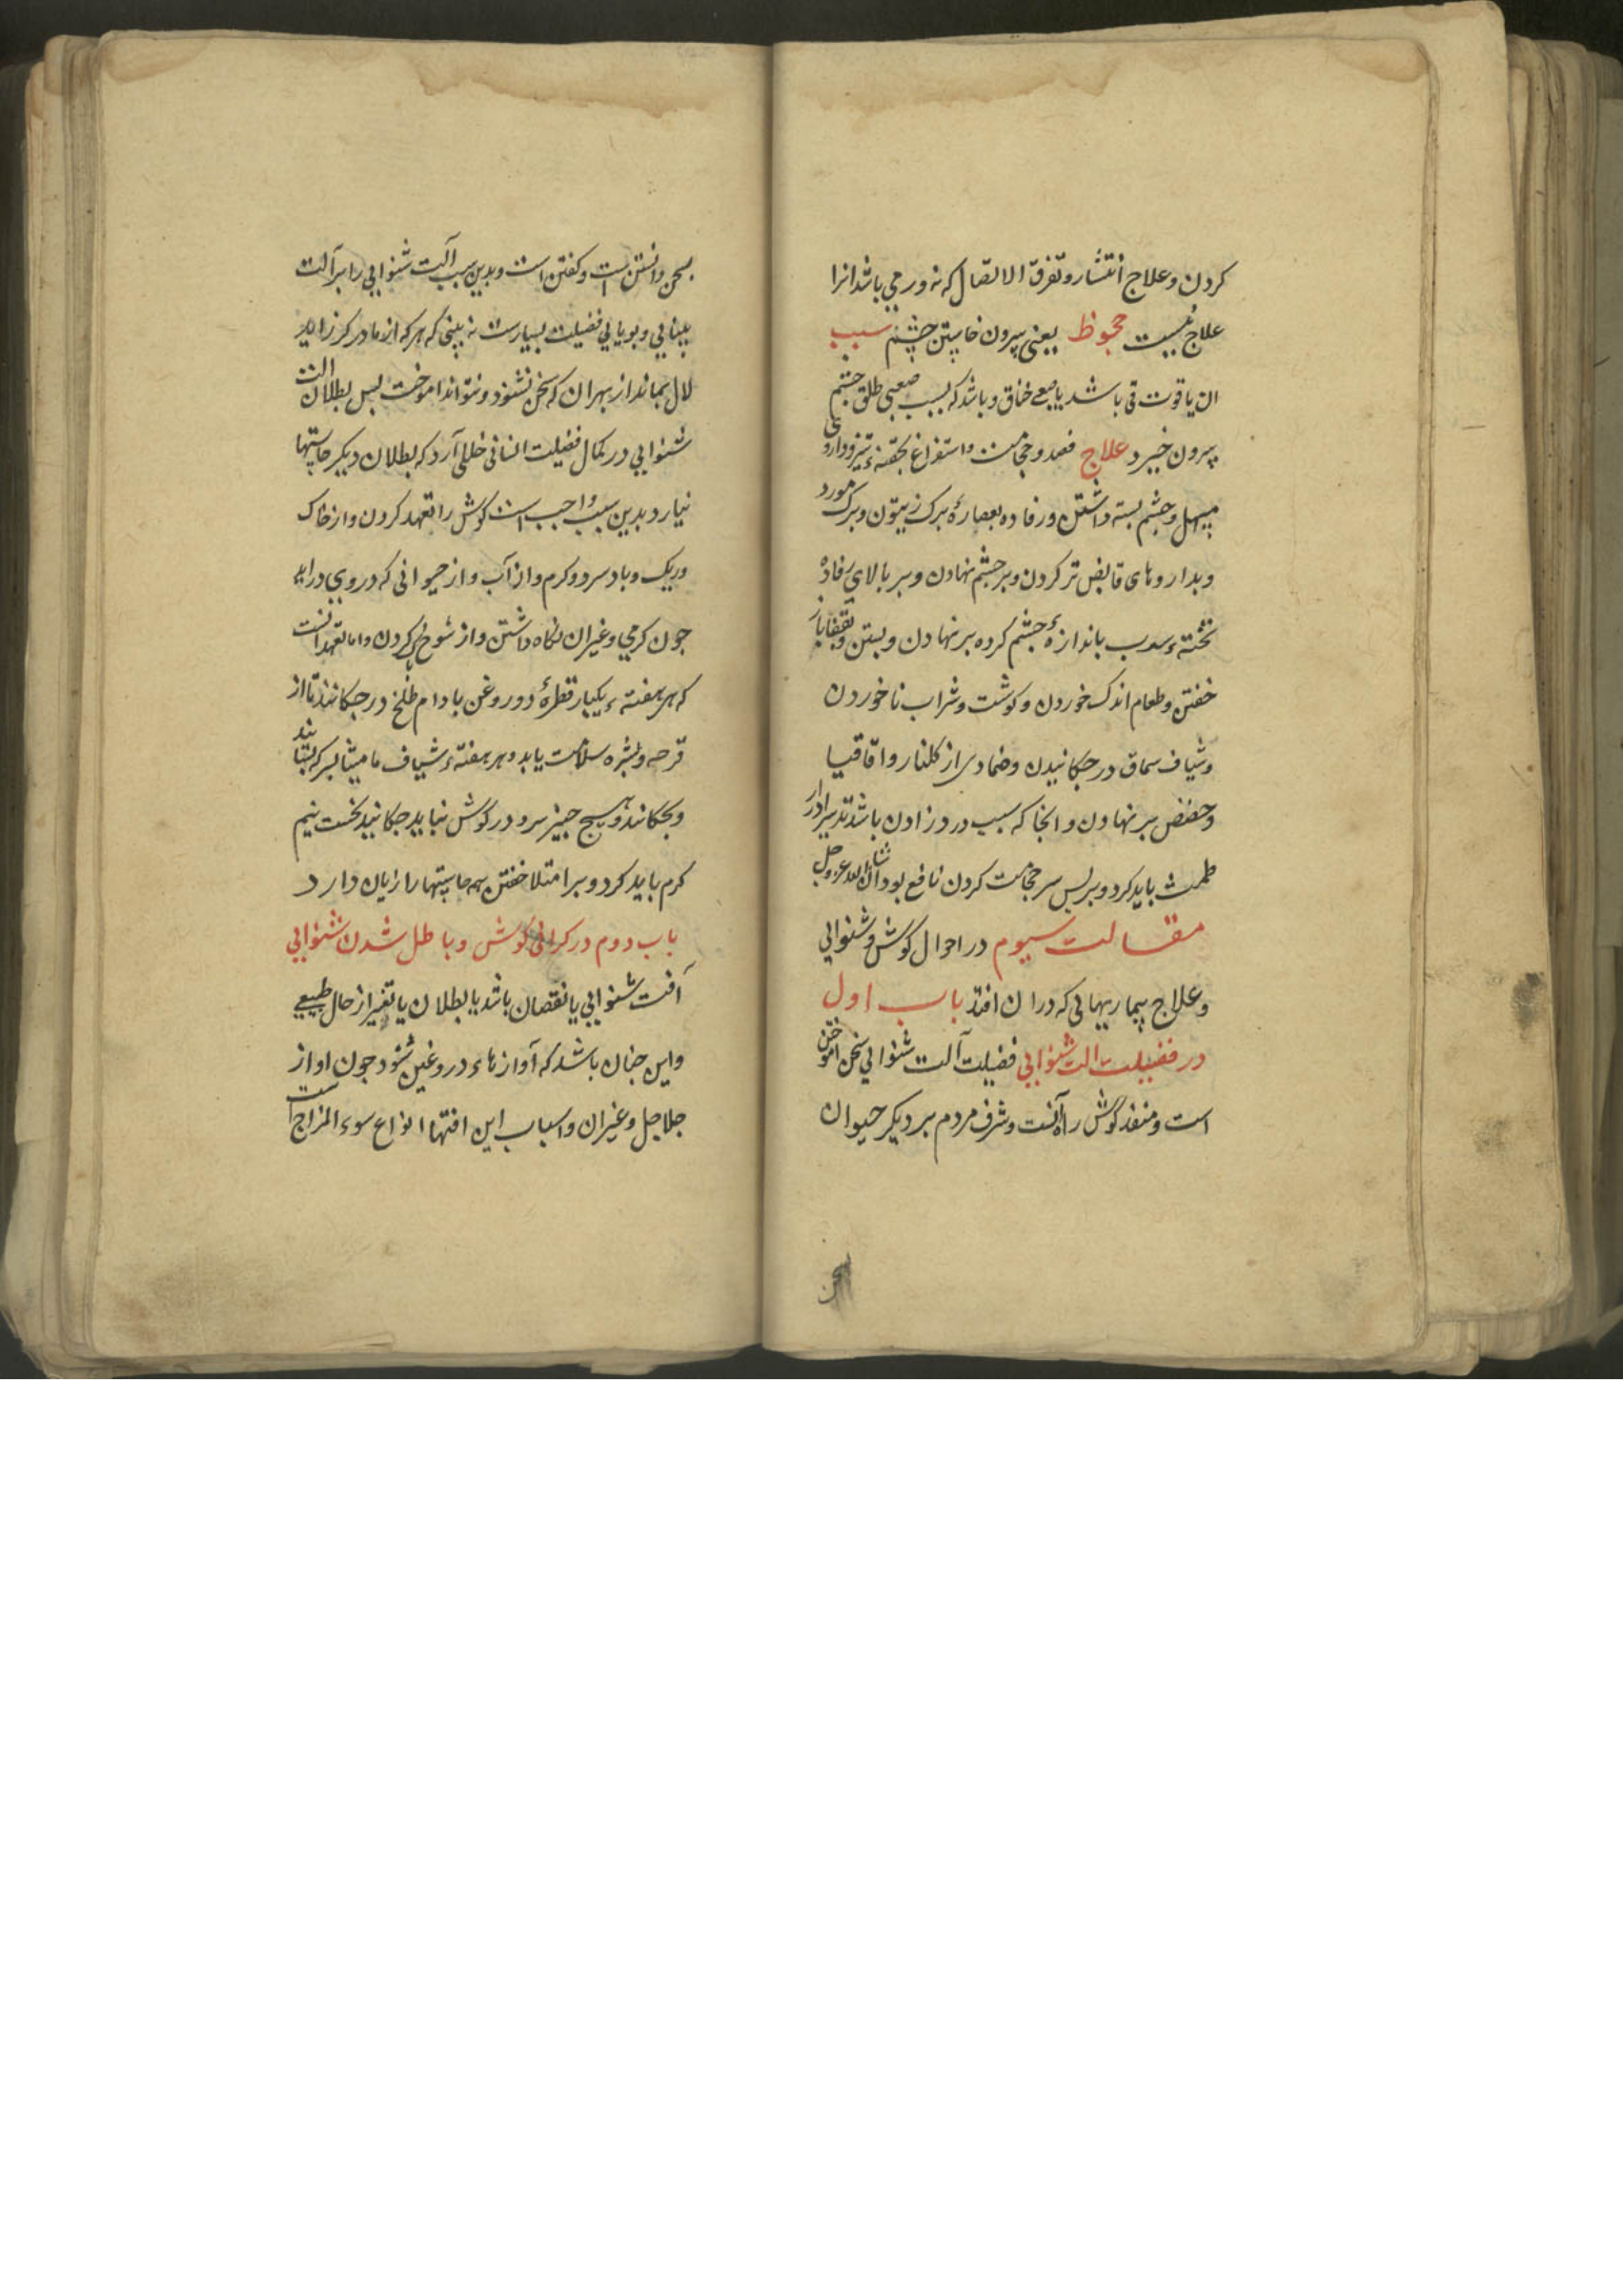 کردن و علاج انتشار و تفرق الاتصال که نه ورمی باشد انرا
علاج نیست جحوظ یعنی بیرون خاستن چشم سبب
ان یا قوت قی باشد یا صعبی خناق و باشد که بسبب صعبی طلق چشم
بیرون خیزد علاج فصد و حجامت و استفراغ بحقنهٔ تیز و داروی
مسهل و چشم بسته داشتن و رفاده بعصارهٔ برک زیتون و برک مورد
و بداروهای قابض تر کردن و بر چشم نهادن و بر بالای رفاده
تختهٔ سرب باندازهٔ چشم کرده بر نهادن و بستن و بقفا باز
خفتن و طعام اندک خوردن و کوشت و شراب ناخوردن
و شیاف سماق در چکانیدن و ضمادی از کلنار و اقاقیا
و حضض بر نهادن و انجا که سبب درد زادن باشد تدبیر ادرار
طمث باید کرد و بر پس سر حجامت کردن نافع بود انشاالله عزوجل
مقالت سیوم در احوال کوش و شنوایی
و علاج بیماریهایی که در ان افتد باب اول
در فضیلت الت شنوایی فضیلت آلت شنوایی سخن اموختن
است و منفذ کوش راه آنست و شرف مردم بر دیکر حیوان
بسخن دانستن است و کفتن است و بدین سبب آلت شنوایی را بر آلت
بینایی و بویایی فضیلت بسیارست نه بینی که هرکه از مادر کر زاید
لال بماند از بهر ان که سخن نشنود و نتواند اموخت پس بطلان الت
شنوایی در کمال فضیلت انسانی خللی آرد که بطلان دیکر حاستها
نیارد بدین سبب واجب است کوش را تعهد کردن و از خاک
و ریک و باد سرد و کرم و از آب و از حیوانی که در وی دراید
چون کرمی و غیر ان نکاه داشتن و از شوخ پاک کردن و اما تعهد انست
که هر هفتهٔ یکبار قطرهٔ دو روغن بادام طلخ در چکانند تا از
قرحه و بثره سلامت یابد و هر هفتهٔ شیاف مامیثا بسرکه بسایند
و بچکانند و هیچ چیز سرد در کوش نباید چکانید نخست نیم
کرم باید کرد و بر امتلا خفتن همه حاستها را زیان دارد
باب دوم در کرانی کوش و باطل شدن شنوایی
آفت شنوایی یا نقصان باشد یا بطلان یا تغیر از حال طبیعی
و این چنان باشد که آوازهاء دروغین شنود چون اواز
جلاجل و غیر ان و اسباب این افتها انواع سوء المزاج است